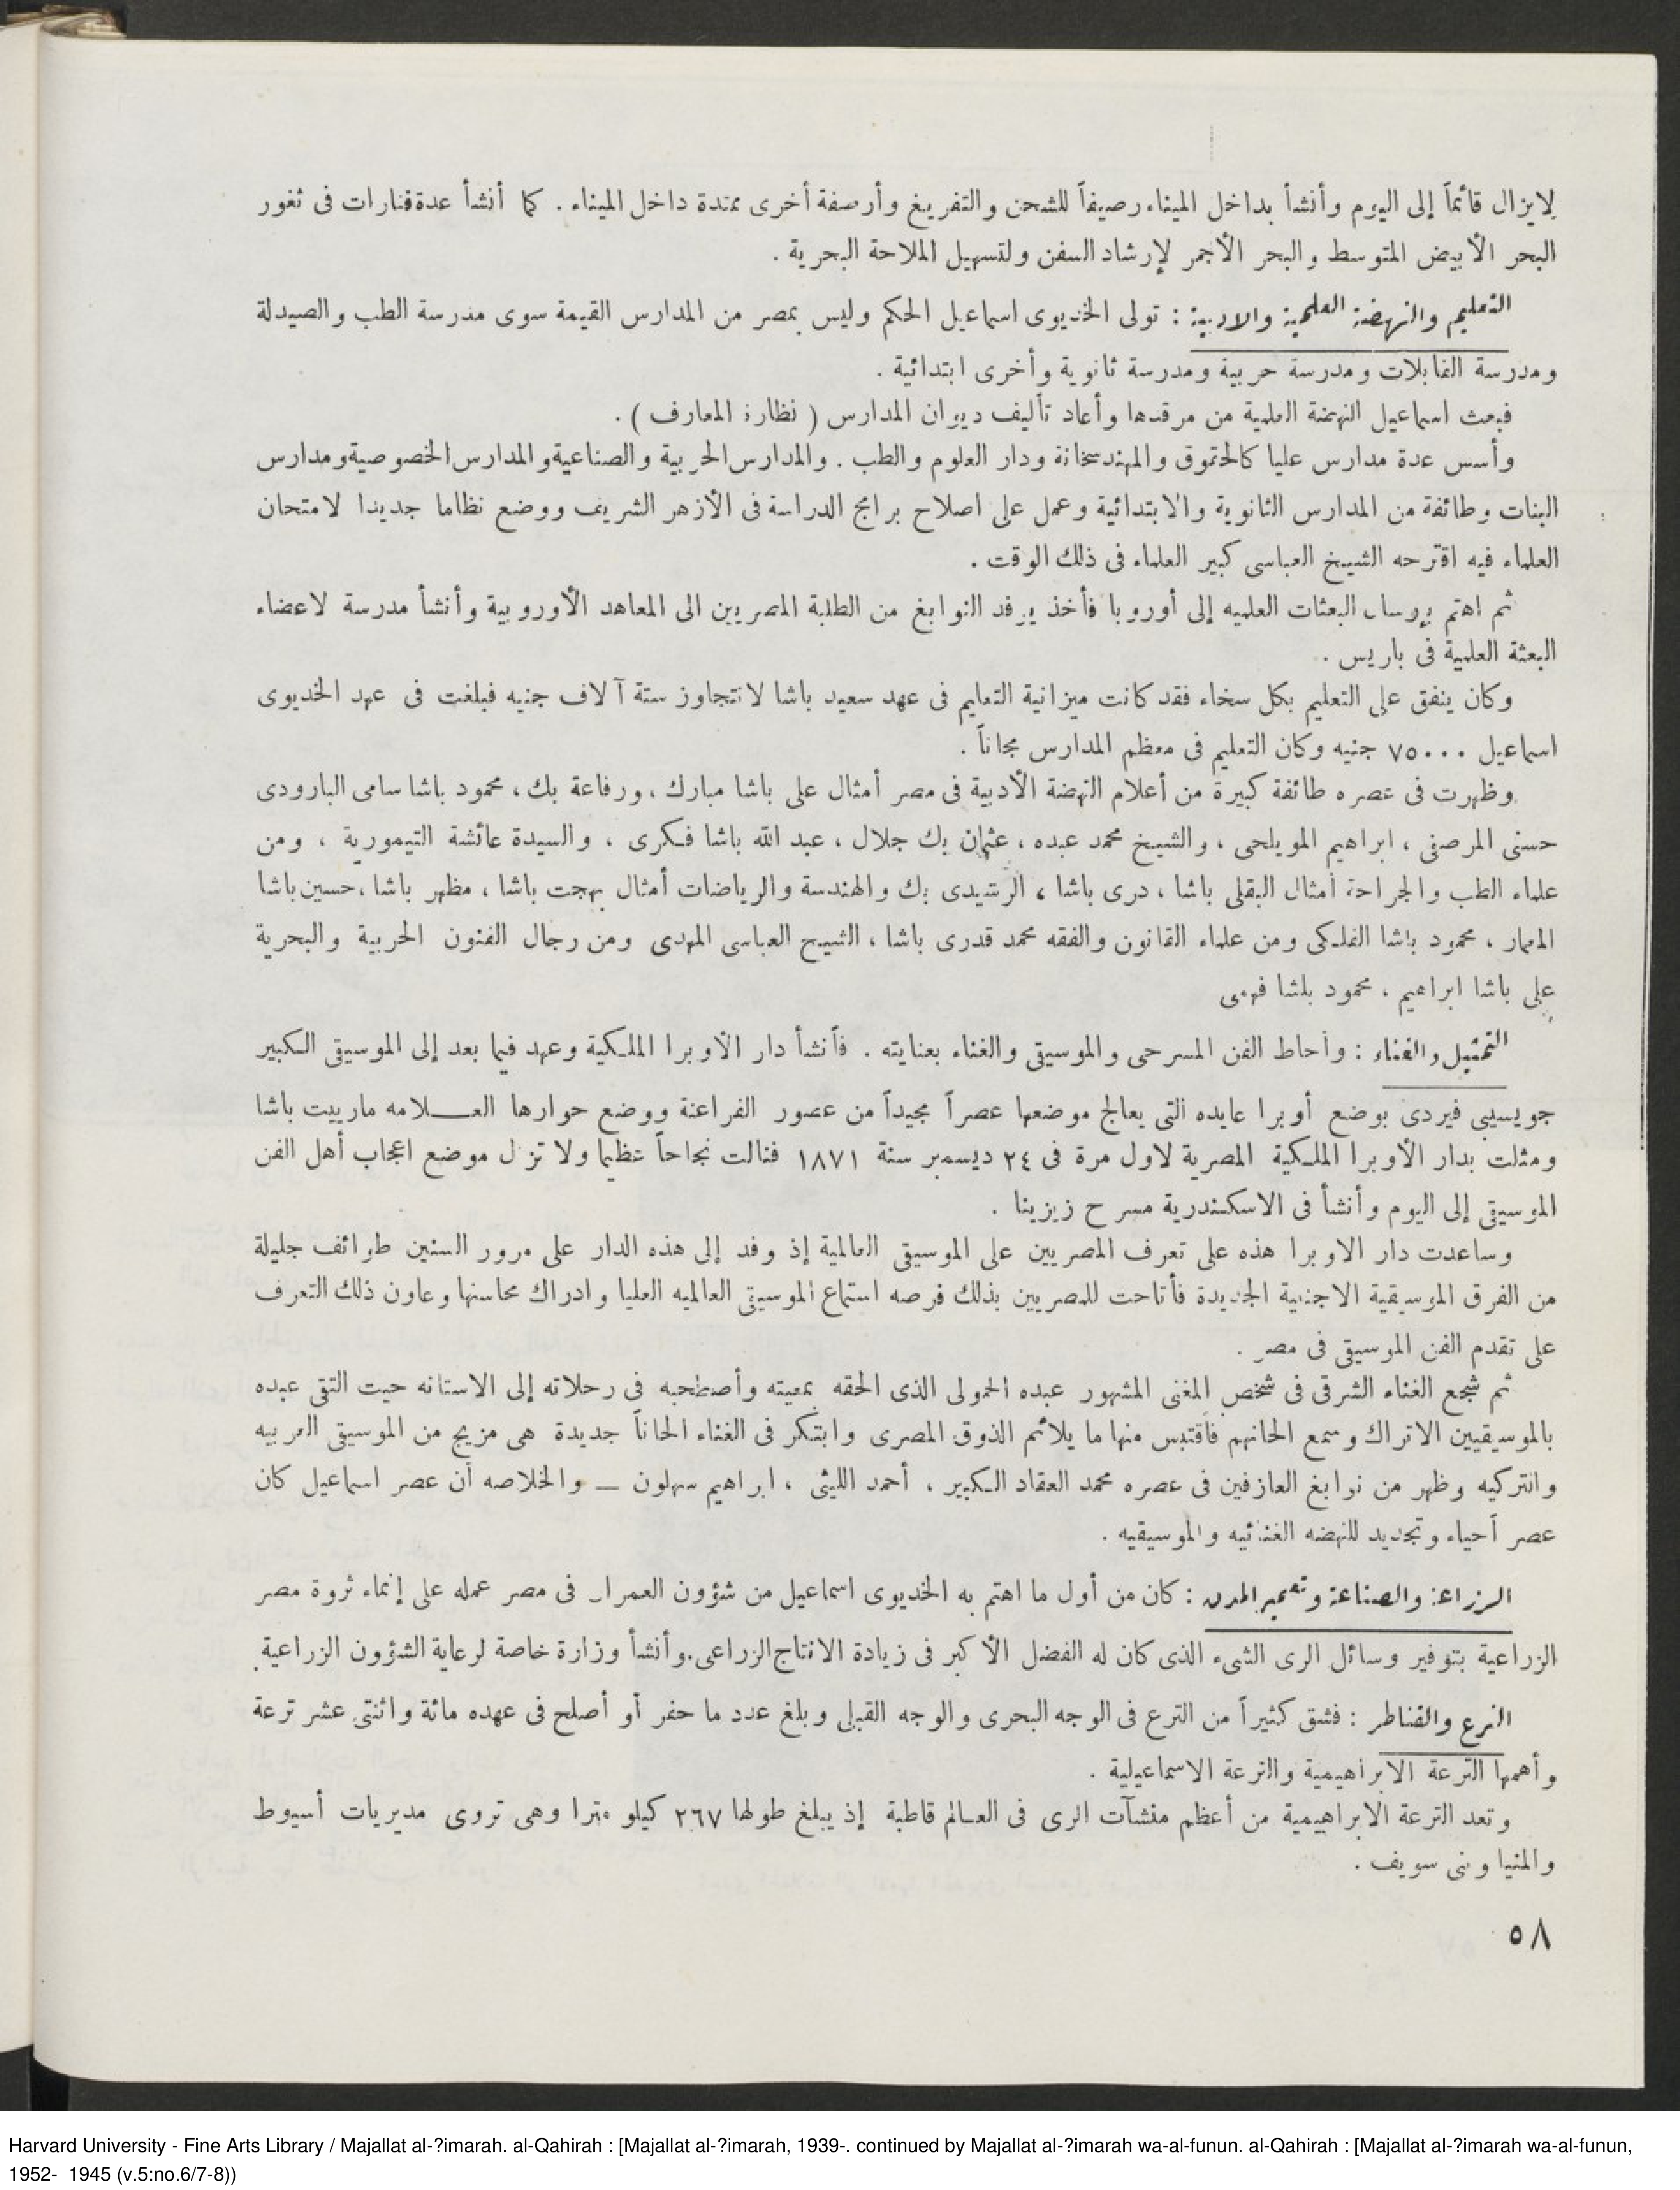 لايزال قائماً إلى اليوم وأنشأ بداخل الميناء رصيفاً للشحن والتفريغ وأرصفة أخرى ممتدة داخل الميناء . كما أنشأ عدة فنارات فى ثغور
البحر الأبيض المتوسط والبحر الأحمر لإرشاد السفن ولتسهيل الملاحة البحرية .
التعليم والنهضة العلمية والادبية : تولى الخديوى اسماعيل الحكم وليس بمصر من المدارس القيمة سوى مدرسة الطب والصيدلة
ومدرسة القابلات ومدرسة حربية ومدرسة ثانوية وأخرى ابتدائية .
فبعث اسماعيل النهضة العلمية من مرقدها وأعاد تأليف ديوان المدارس ( نظارة المعارف ) .
وأسس عدة مدارس عليا كالحقوق والمهندسخانة ودار العلوم والطب . والمدارس الحربية والصناعية والمدارس الخصوصية ومدارس
البنات وطائفة من المدارس الثانوية والابتدائية وعمل على اصلاح برامج الدراسة فى الأزهر الشريف ووضع نظاما جديدا لامتحان
العلماء فيه اقترحه الشييخ العباسى كبير العلماء فى ذلك الوقت .
ثم اهتم بإرسال البعثات العلميه إلى أوروبا فأخذ يرفد النوابغ من الطلبة المصريين الى المعاهد الأوروبية وأنشأ مدرسة لاعضاء
البعثة العلمية فى باريس .
وكان ينفق على التعليم بكل سخاء فقد كانت ميزانية التعليم فى عهد سعيد باشا لا تتجاوز ستة آلاف جنيه فبلغت فى عهد الخديوى
اسماعيل ٧٥٠٠٠ جنيه وكان التعليم فى معظم المدارس مجاناً .
وظهرت فى عصره طائفة كبيرة من أعلام النهضة الأدبية فى مصر أمثال على باشا مبارك ، ورفاعة بك ، محمود باشا سامى البارودى
حسنى المرصفى ، ابراهيم المويلحى ، والشييخ محمد عبده ، عثمان بك جلال ، عبد الله باشا فكرى ، والسيدة عائشة التيمورية ، ومن
علماء الطب والجراحة أمثال البقلى باشا ، درى باشا ، الرشيدى بك والهندسة والرياضات أمثال بهجت باشا ، مظهر باشا ، حسين باشا
المعمار ، محمود باشا الفلكى ومن علماء القانون والفقه محمد قدرى باشا ، الشييح العباسى المهدى ومن رجال الفنون الحربية والبحرية
على باشا ابراهيم ، محمود بلشا فهمى
التمثيل والغناء : وأحاط الفن المسرحى والموسيقى والغناء بعنايته . فأنشأ دار الأوبرا الملكية وعهد فيما بعد إلى الموسيقى الكبير
جويسيبى فيردى بوضع أوبرا عايده التى يعالج موضعها عصراً مجيداً من عصور الفراعنة ووضع حوارها العـــلامه مارييت باشا
ومثلت بدار الأوبرا الملكية المصرية لاول مرة فى ٢٤ ديسمبر سنة ١٨٧١ فنالت نجاحاً عظيما ولا تزال موضع اعجاب أهل الفن
الموسيقى إلى اليوم وأنشأ فى الاسكندرية مسرح زيزينا .
وساعدت دار الاوبرا هذه على تعرف المصريين على الموسيقى العالمية إذ وفد إلى هذه الدار على مرور السنين طوائف جليلة
من الفرق الموسيقية الاجنبية الجديدة فأتاحت للمصريين بذلك فرصه استماع الموسيقى العالميه العليا وادراك محاسنها وعاون ذلك التعرف
على تقدم الفن الموسيقى فى مصر .
ثم شجع الغناء الشرقى فى شخص المغنى المشهور عبده الحمولى الذى الحقه بمعيته وأصطحبه فى رحلاته إلى الاستانه حيت التقى عبده
بالموسيقيين الاتراك وسمع الحانهم فأقتبس منها ما يلائم الذوق المصرى وابتكر فى الغناء الحاناً جديدة هى مزيج من الموسيقى العربيه
والتركيه وظهر من نوابغ العازفين فى عصره محمد العقاد الكبير ، أحمد الليثى ، ابراهيم سهلون — والخلاصه أن عصر اسماعيل كان
عصر أحياء وتجديد للنهضه الغنائيه والموسيقيه .
الزراعة والصناعة وتعمير المدن : كان من أول ما اهتم به الخديوى اسماعيل من شؤون العمران فى مصر عمله على إنماء ثروة مصر
الزراعية بتوفير وسائل الرى الشىء الذى كان له الفضل الأكبر فى زيادة الانتاج الزراعى . وأنشأ وزارة خاصة لرعاية الشؤون الزراعية .
الترع والقناطر : فشق كثيراً من الترع فى الوجه البحرى والوجه القبلى وبلغ عدد ما حفر أو أصلح فى عهده مائة واثنتى عشر ترعة
وأهمها الترعة الابراهيمية والترعة الاسماعيلية .
وتعد الترعة الابراهيمية من أعظم منشآت الرى فى العالم قاطبة إذ يبلغ طولها ٢٦٧ كيلو مترا وهى تروى مديريات أسيوط
والمنيا وبنى سويف .
٥٨
Harvard University - Fine Arts Library / Majallat al-?imarah. al-Qahirah : [Majallat al-?imarah, 1939-. continued by Majallat al-?imarah wa-al-funun. al-Qahirah : [Majallat al-?imarah wa-al-funun,
1952- 1945 (v.5:no.6/7-8))